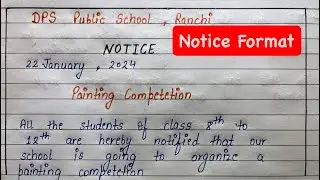 DPS Public School, Ranchi
NOTICE
Notice Format
22 January, 2024
Painting Competetion
All the students of class 8th to
12th are hereby notified that our
school is going to organize a
painting competetion